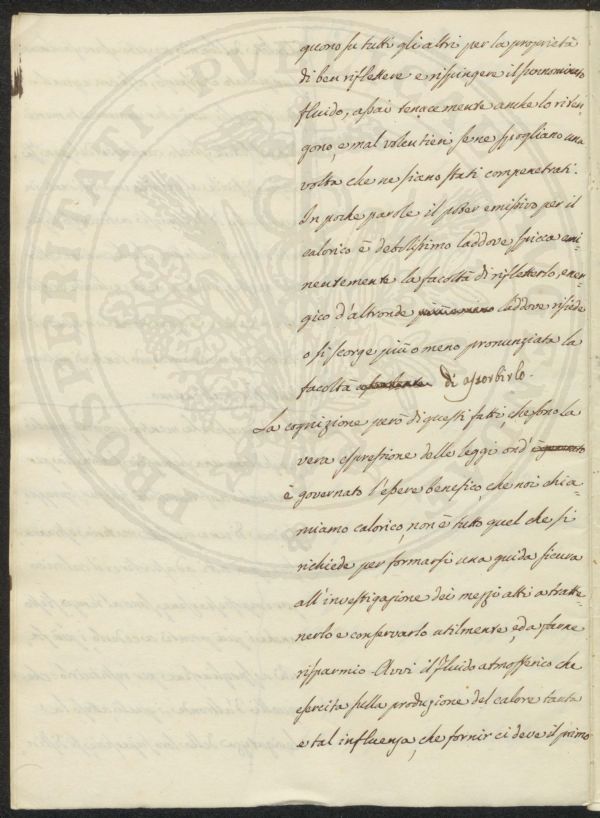 quono su tutti gli altri per la proprietà
di ben riflettere e rispingere il sunnominato
fluido, assai tenacemente anche lo riten-
gono, e mal volentieri se ne spogliano una
volta che ne siano stati compenetrati.
In poche parole il poter emissivo per il
calorico è debolissimo laddove spicca emi-
nentemente la facoltà di rifletterlo, ener-
gico d'altronde laddove risiede
o si scorge più o meno pronunziata la
facoltà di assorbirlo.
La cognizione però di questi fatti, che sono la
vera espressione delle leggi ond'
è governato l'essere benefico, che noi chia-
miamo calorico, non è tutto quel che si
richiede per formarsi una guida sicura
all'investigazione dei mezzi atti a tratte-
nerlo e conservarlo utilmente, ed a farne
risparmio. Avvi il fluido atmosferico che
esercita sulla produzione del calore tanta
e tal influenza, che fornir ci deve il primo
PROSPERITATI PVB